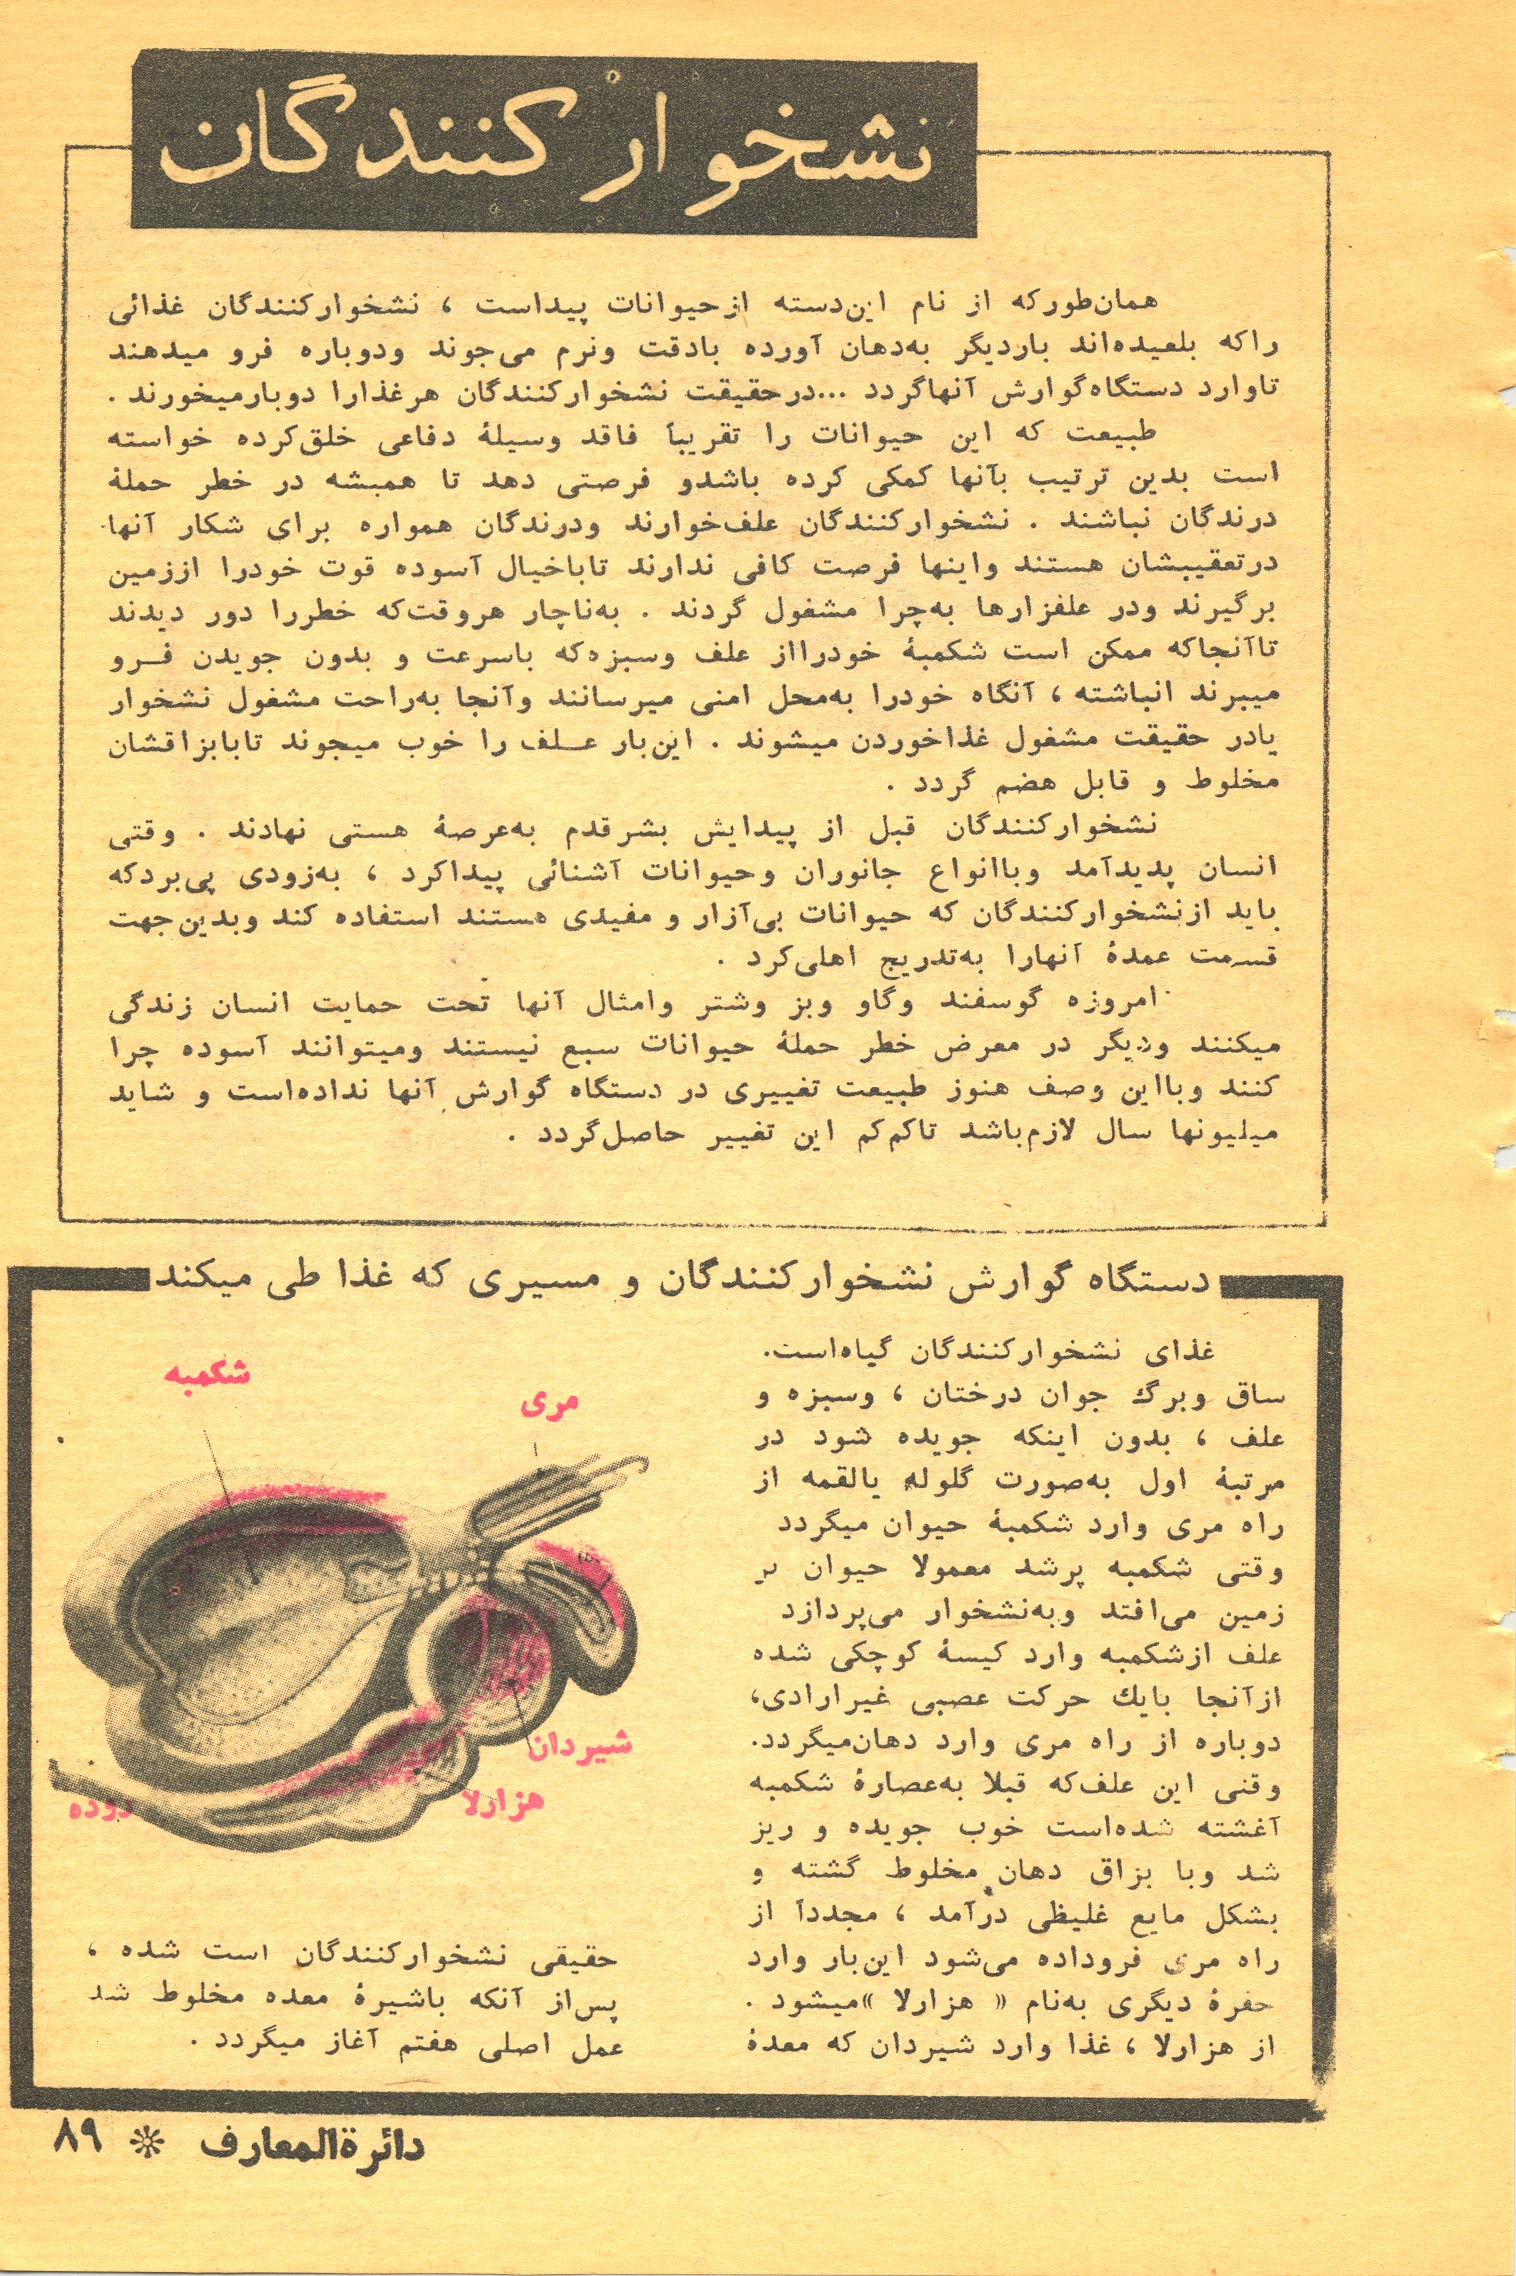 نشخوارکنندگان
همان‌طورکه از نام این‌دسته ازحیوانات پیداست ، نشخوارکنندگان غذائی
راکه بلعیده‌اند باردیگر به‌دهان آورده بادقت ونرم می‌جوند ودوباره فرو میدهند
تاوارد دستگاه‌گوارش آنهاگردد ...درحقیقت نشخوارکنندگان هرغذارا دوبارمیخورند .
طبیعت که این حیوانات را تقریباً فاقد وسیلهٔ دفاعی خلق‌کرده خواسته
است بدین ترتیب بآنها کمکی کرده باشدو فرصتی دهد تا همبشه در خطر حملهٔ
درندگان نباشند . نشخوارکنندگان علف‌خوارند ودرندگان همواره برای شکار آنها
درتعقیبشان هستند واینها فرصت کافی ندارند تاباخیال آسوده قوت خودرا اززمین
برگیرند ودر علفزارها به‌چرا مشغول گردند . به‌ناچار هروقت‌که خطررا دور دیدند
تاآنجاکه ممکن است شکمبهٔ خودرااز علف وسبزه‌که باسرعت و بدون جویدن فـرو
میبرند انباشته ، آنگاه خودرا به‌محل امنی میرسانند وآنجا به‌راحت مشغول نشخوار
یادر حقیقت مشغول غذاخوردن میشوند . این‌بار عـلف را خوب میجوند تابابزاقشان
مخلوط و قابل هضم گردد .
نشخوارکنندگان قبل از پیدایش بشرقدم به‌عرصهٔ هستی نهادند . وقتی
انسان پدیدآمد وباانواع جانوران وحیوانات آشنائی پیداکرد ، به‌زودی پی‌بردکه
باید ازنشخوارکنندگان که حیوانات بی‌آزار و مفیدی هستند استفاده کند وبدین‌جهت
قسمت عمدهٔ آنهارا به‌تدریج اهلی‌کرد .
امروزه گوسفند وگاو وبز وشتر وامثال آنها تحت حمایت انسان زندگی
میکنند ودیگر در معرض خطر حملهٔ حیوانات سبع نیستند ومیتوانند آسوده چرا
کنند وبااین وصف هنوز طبیعت تغییری در دستگاه گوارش آنها نداده‌است و شاید
میلیونها سال لازم‌باشد تاکم‌کم این تغییر حاصل‌گردد .
دستگاه گوارش نشخوارکنندگان و مسیری که غذا طی میکند
غذای نشخوارکنندگان گیاه‌است.
ساق وبرگ جوان درختان ، وسبزه و
علف ، بدون اینکه جویده شود در
مرتبهٔ اول به‌صورت گلوله یالقمه از
راه مری وارد شکمبهٔ حیوان میگردد
وقتی شکمبه پرشد معمولا حیوان بر
زمین می‌افتد وبه‌نشخوار می‌پردازد
علف ازشکمبه وارد کیسهٔ کوچکی شده
ازآنجا بایك حرکت عصبی غیرارادی،
دوباره از راه مری وارد دهان‌میگردد.
وقنی این علف‌که قبلا به‌عصارهٔ شکمبه
آغشته شده‌است خوب جویده و ریز
شد وبا بزاق دهان مخلوط گشته و
بشکل مایع غلیظی درآمد ، مجدداً از
راه مری فروداده می‌شود این‌بار وارد
حفرهٔ دیگری به‌نام « هزارلا »میشود .
از هزارلا ، غذا وارد شیردان که معدهٔ
شکمبه
مری
شیردان
هزارلا
روده
حقیقی نشخوارکنندگان است شده ،
پس‌از آنکه باشیرهٔ معده مخلوط شد
عمل اصلی هفتم آغاز میگردد .
دائرةالمعارف ❊ ۸۹